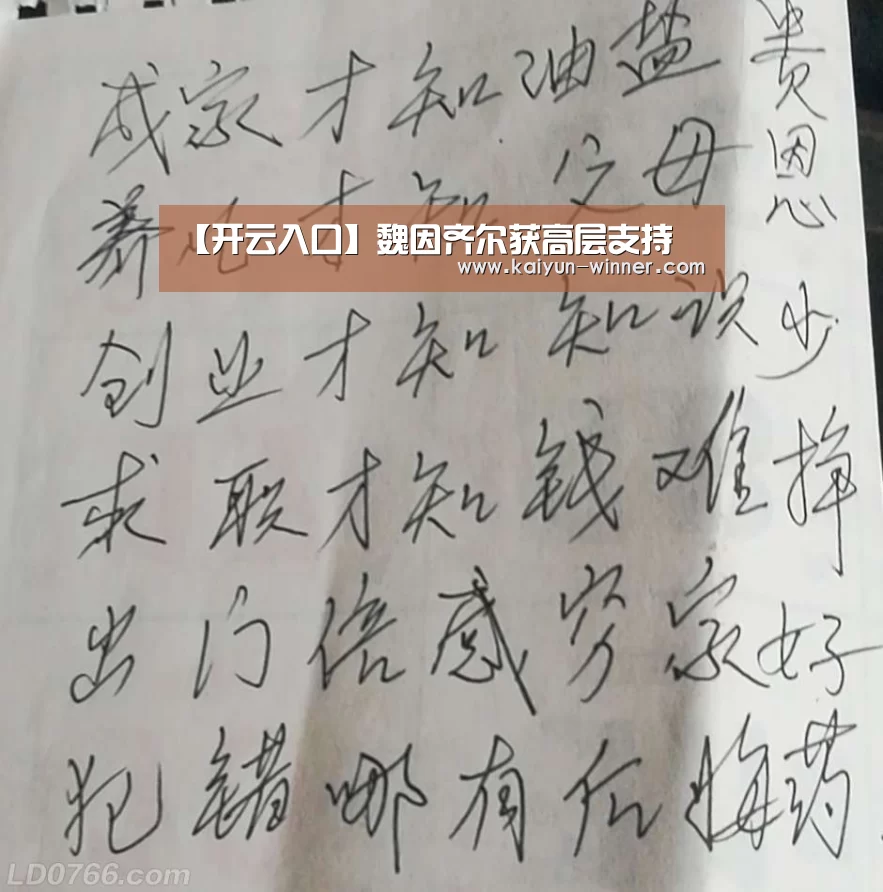 成家才知油盐贵
养儿才知父母恩
【开云入口】魏因齐尔获高层支持
www.kaiyun-winner.com
创业才知知识少
求职才知钱难挣
出门倍感穷家好
犯错哪有后悔药
LD0766.com